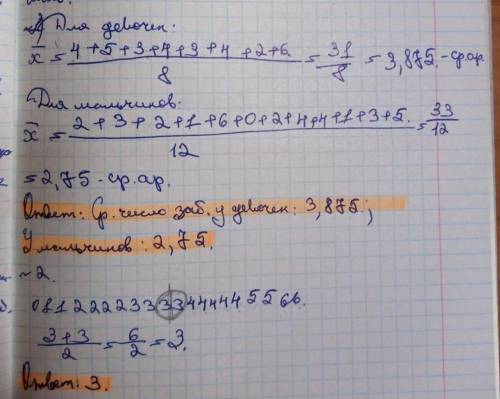 Для девочек:
x̄ = (4+5+3+4+3+4+2+6)/8 = 31/8 = 3,875 - ср.ар.
Для мальчиков:
x̄ = (2+3+2+1+6+0+2+4+4+1+3+5)/12 = 33/12
= 2,75 - ср.ар.
Ответ: Ср. число заб. у девочек: 3,875;
У мальчиков: 2,75.
~2.
0 1 1 2 2 2 2 3 3 3 3 4 4 4 4 4 5 5 6 6.
(3+3)/2 = 6/2 = 3.
Ответ: 3.